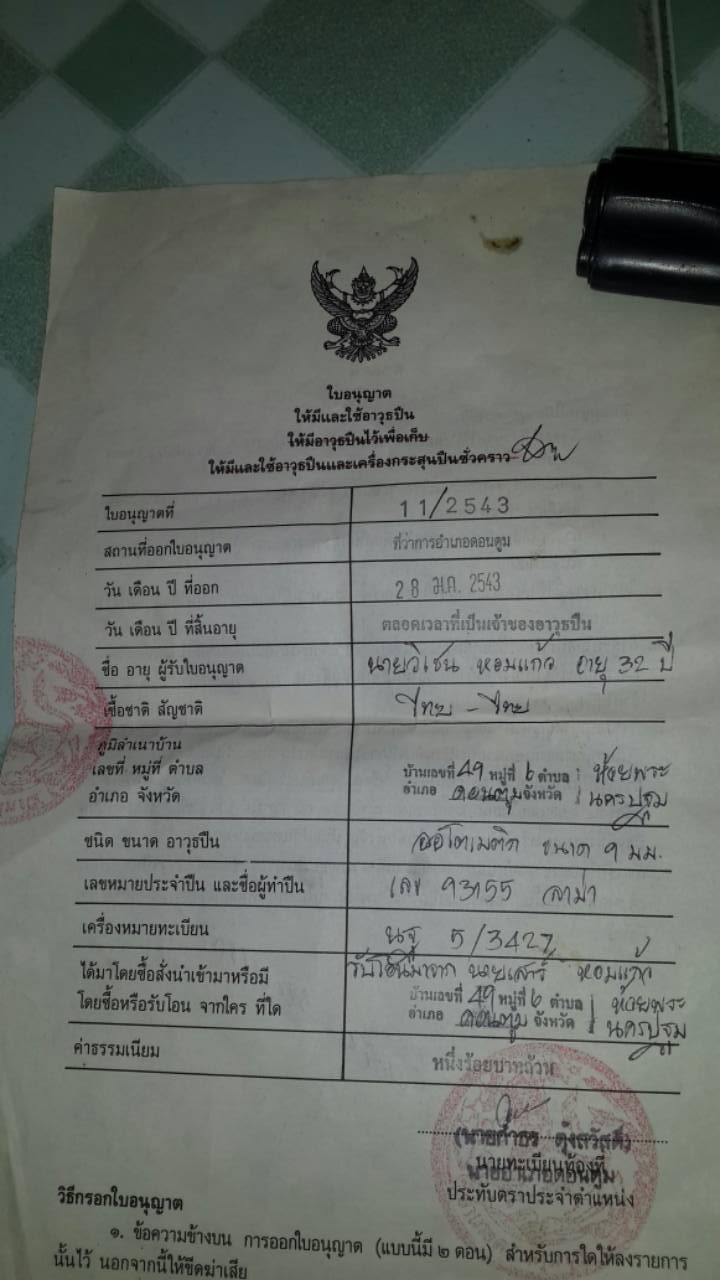 ใบอนุญาต
ให้มีและใช้อาวุธปืน
ให้มีอาวุธปืนไว้เพื่อเก็บ
ให้มีและใช้อาวุธปืนและเครื่องกระสุนปืนชั่วคราว
ใบอนุญาตที่ 11/2543
สถานที่ออกใบอนุญาต ที่ว่าการอำเภอดอนตูม
วัน เดือน ปี ที่ออก 28 ม.ค. 2543
วัน เดือน ปี ที่สิ้นอายุ ตลอดเวลาที่เป็นเจ้าของอาวุธปืน
ชื่อ อายุ ผู้รับใบอนุญาต นายวิเชน หอมแก้ว อายุ 32 ปี
เชื้อชาติ สัญชาติ ไทย - ไทย
ภูมิลำเนาบ้าน
เลขที่ หมู่ที่ ตำบล บ้านเลขที่ 49 หมู่ที่ 6 ตำบล ห้วยพระ
อำเภอ จังหวัด อำเภอ ดอนตูม จังหวัด นครปฐม
ชนิด ขนาด อาวุธปืน ออโตเมติก ขนาด 9 มม.
เลขหมายประจำปืน และชื่อผู้ทำปืน เลข 93155 ลาม่า
เครื่องหมายทะเบียน นฐ 5/3427
ได้มาโดยซื้อสั่งนำเข้ามาหรือมี รับโอนมาจาก นายเสาร์ หอมแก้ว
โดยซื้อหรือรับโอน จากใคร ที่ใด บ้านเลขที่ 49 หมู่ที่ 6 ตำบล ห้วยพระ
อำเภอ ดอนตูม จังหวัด นครปฐม
ค่าธรรมเนียม หนึ่งร้อยบาทถ้วน
นายทะเบียนท้องที่
นายอำเภอดอนตูม
ประทับตราประจำตำแหน่ง
วิธีกรอกใบอนุญาต
๑. ข้อความข้างบน การออกใบอนุญาต (แบบนี้มี ๒ ตอน) สำหรับการใดให้ลงรายการ
นั้นไว้ นอกจากนี้ให้ขีดฆ่าเสีย